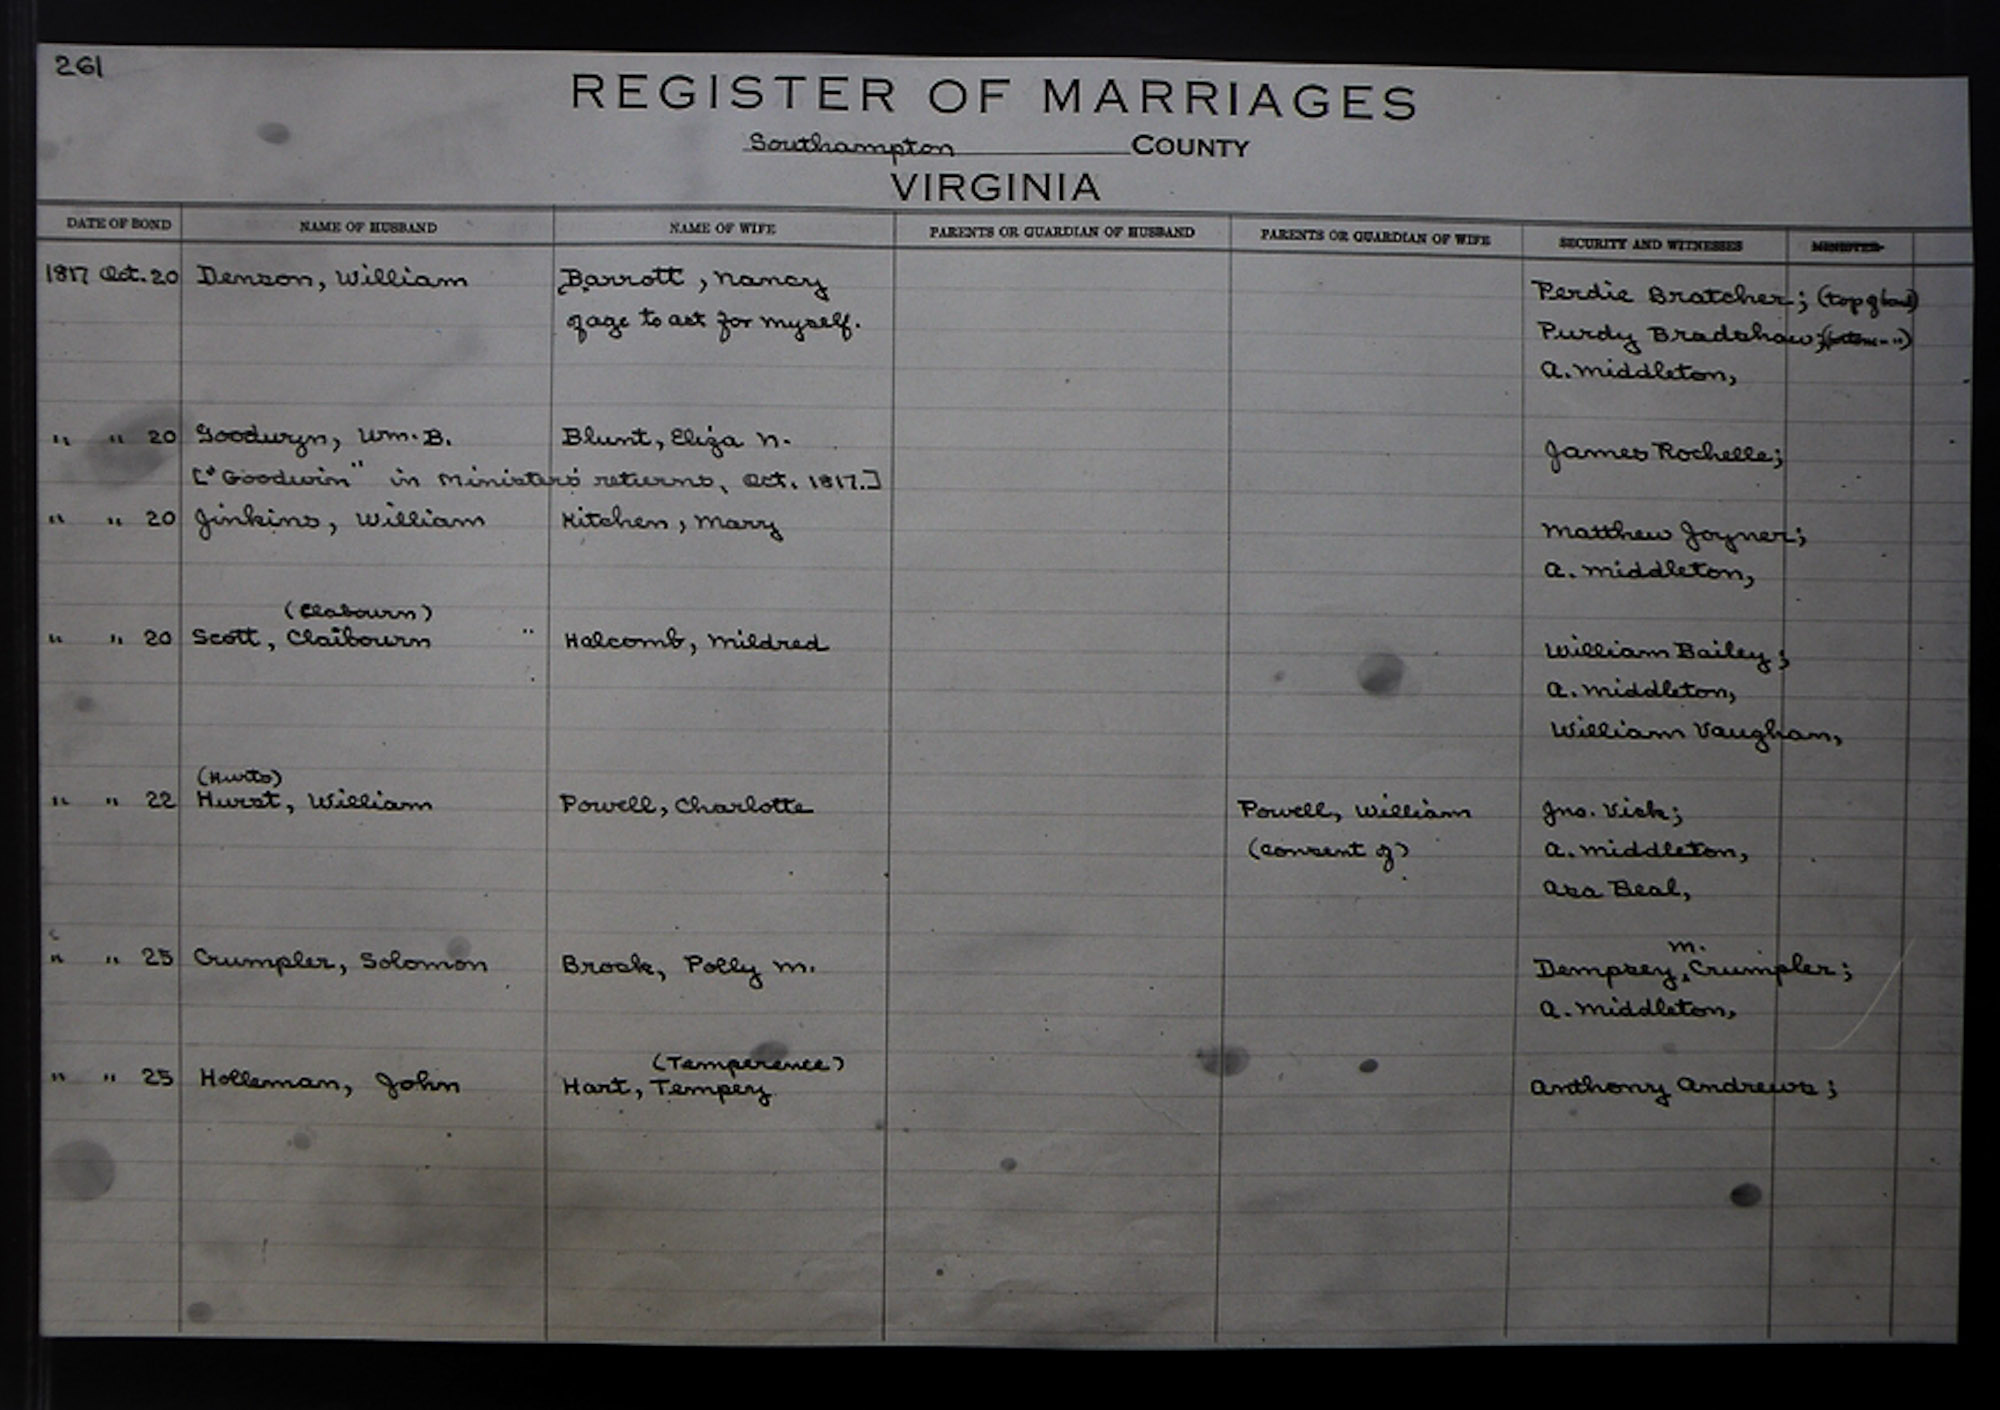 261
REGISTER OF MARRIAGES
Southampton COUNTY
VIRGINIA
DATE OF BOND NAME OF HUSBAND NAME OF WIFE PARENTS OR GUARDIAN OF HUSBAND PARENTS OR GUARDIAN OF WIFE SECURITY AND WITNESSES MINISTER
1817 Oct. 20 Denson, William Barrott, Nancy Perdie Bratcher; (top of bond)
of age to act for myself. Purdy Bradshaw;
A. Middleton,
" " 20 Goodwyn, Wm. B. Blunt, Eliza N. James Rochelle;
["Goodwin" in Ministers' returns, Oct. 1817.]
" " 20 Jinkins, William Kitchen, Mary Matthew Joyner;
A. Middleton,
(Clabourn)
" " 20 Scott, Claibourn " Halcomb, Mildred William Bailey;
A. Middleton,
William Vaughan,
(Hurts)
" " 22 Hurst, William Powell, Charlotte Powell, William Jno. Vick;
(consent of) A. Middleton,
Asa Beal,
m.
" " 25 Crumpler, Solomon Brock, Polly M. Dempsey Crumpler;
A. Middleton,
(Temperence)
" " 25 Holleman, John Hart, Tempey Anthony Andrews;